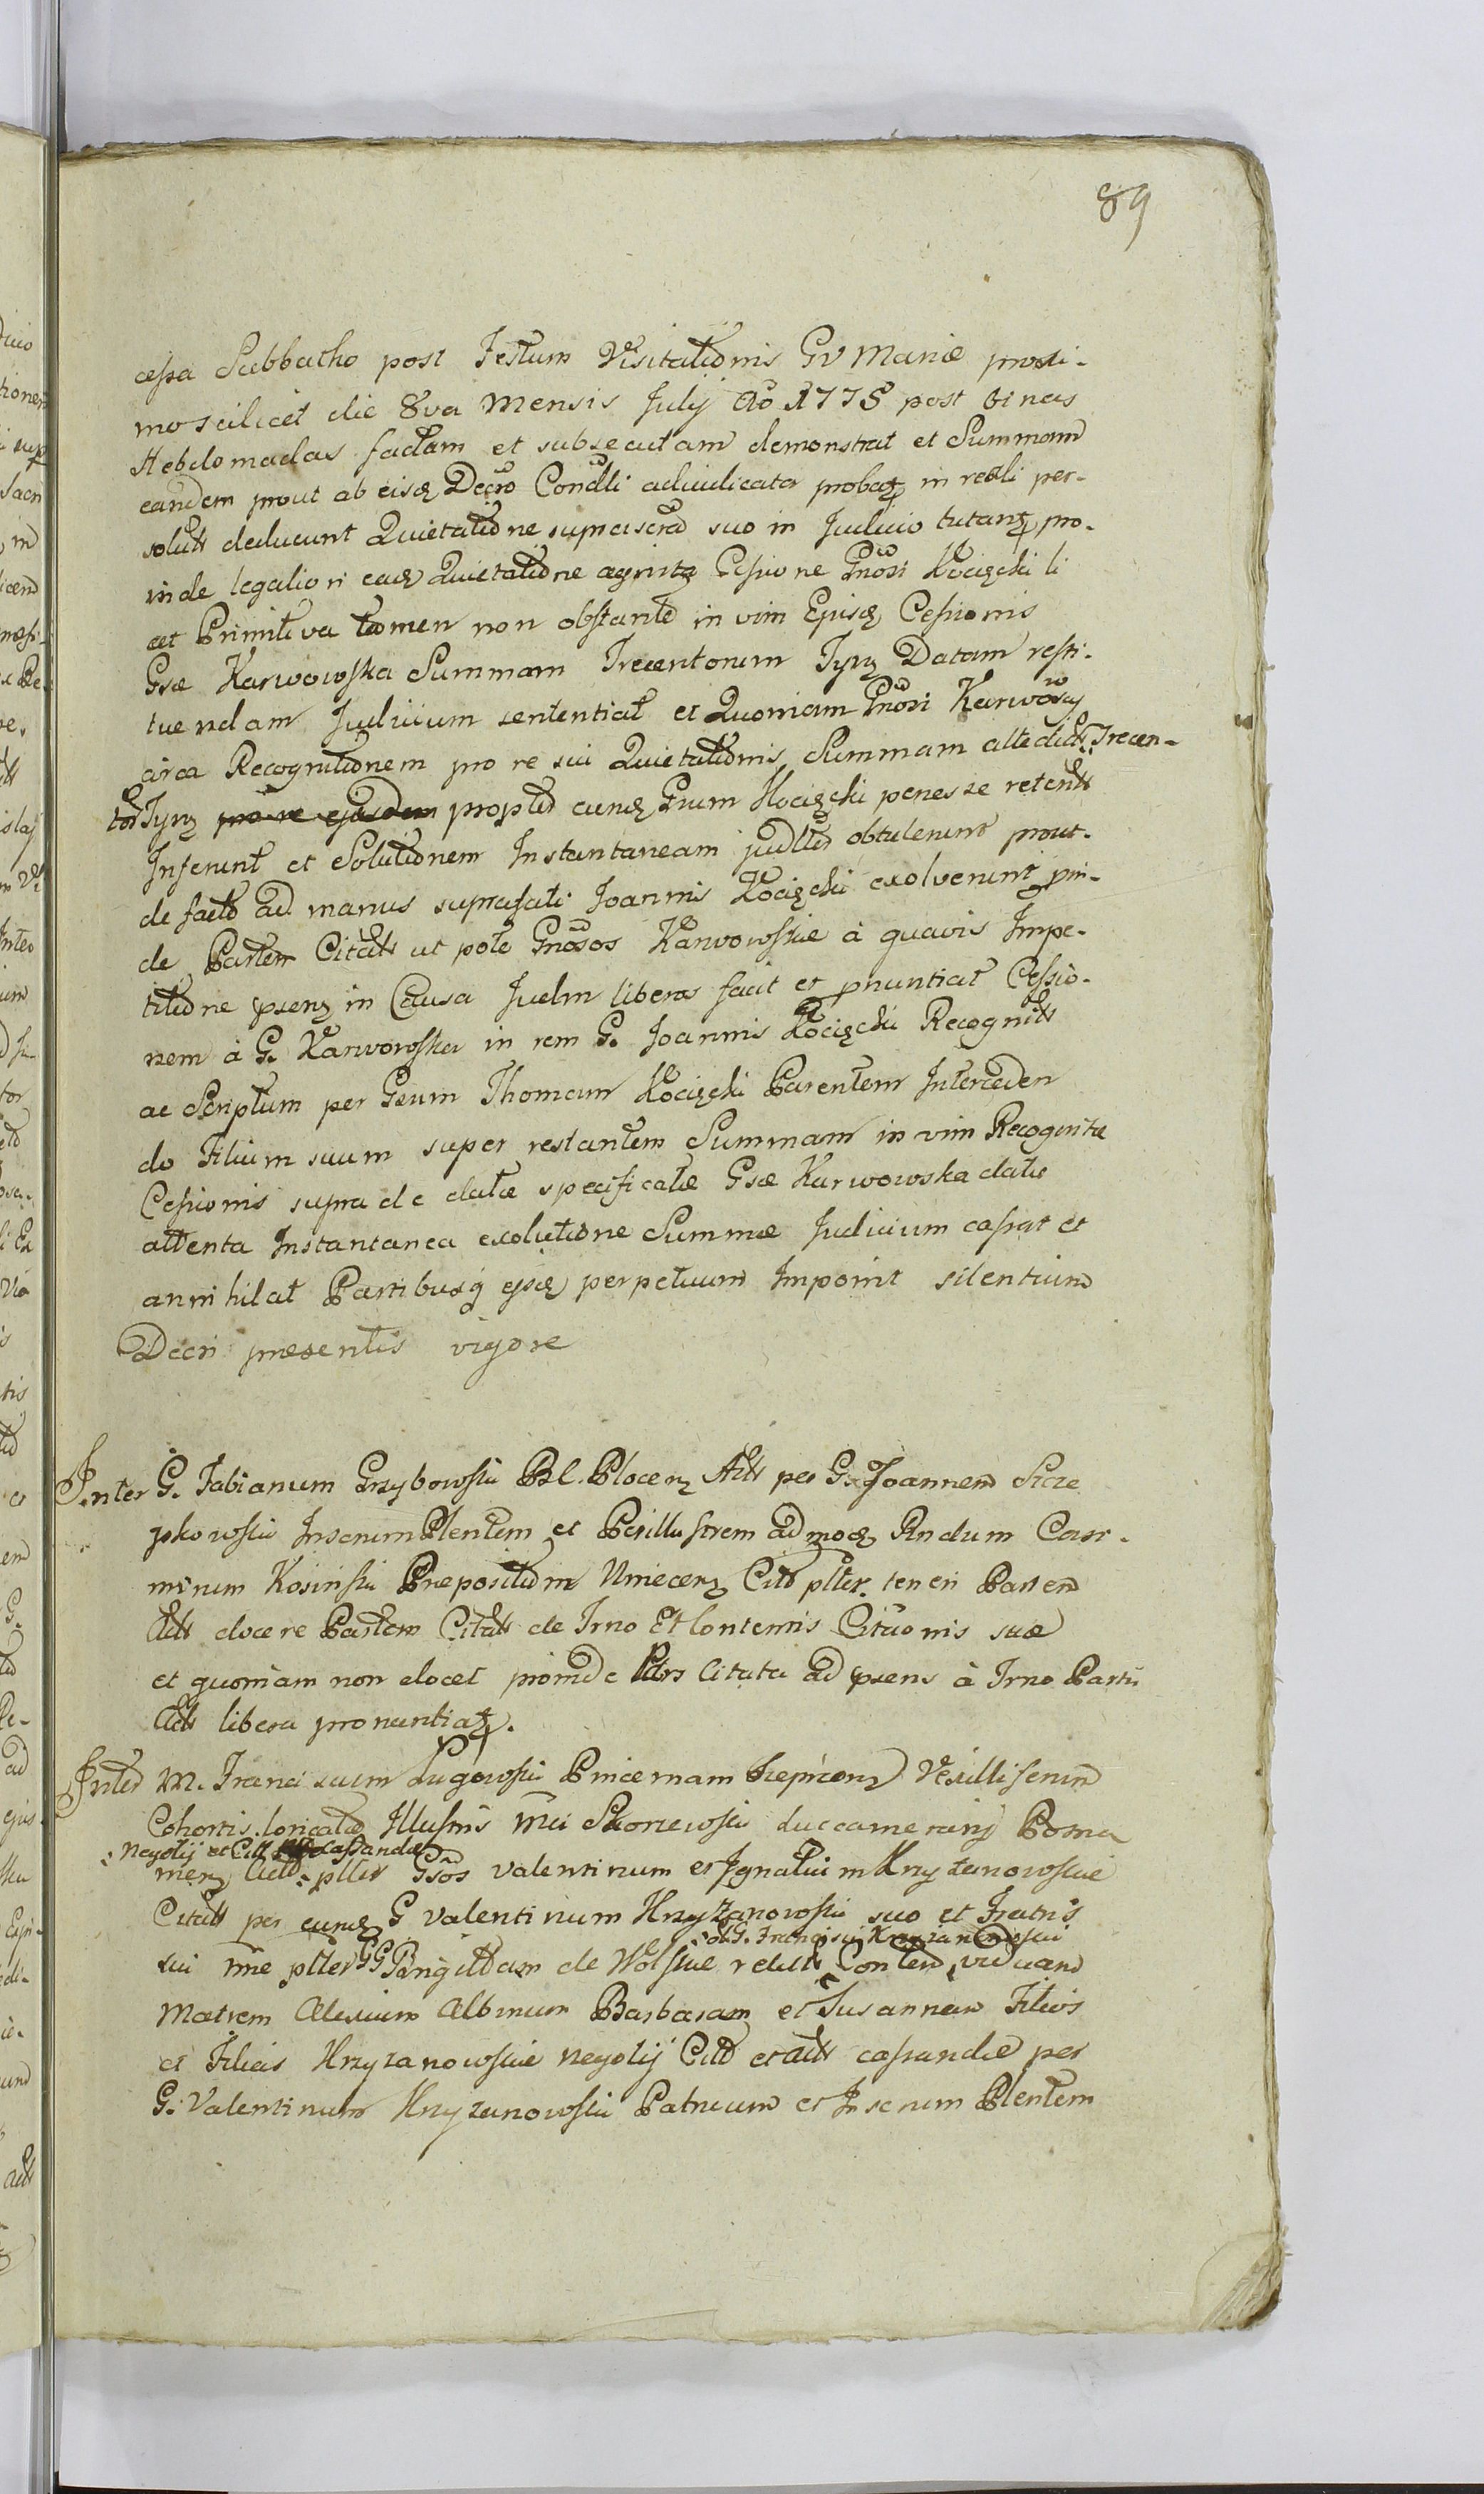 89
cessa Sabbatho post Festum Visitationis GV Mariæ proxi-
mo scilicet die 8va Mensis Julij Ao 1775 post binas
Hebdomadas factam et subsecutam demonstrat et Summam
eandem prout ab eisq Decro Condlli adiudicata probatz in reali per-
soluts deducunt Quietatione supra suo in Judicio tutantz pro-
inde legaliori eadq Quietatione agnitz Cessione Gnosi Kocięcki li
cet Primitiva tamen non obstante in vim Ejusq Cessionis
Gsæ Karwowska Summam Trecentorum Tynz Datam resti-
tuendam Judicium sententiat et Quoniam Gnosi Karwoscy
circa Recognitionem pro re sui Quietationis Summam attactats Trecen-
tor Tynz pro re ejusdem propter eundq Gsum Kocięcki penes se retents
Inserunt et Solutionem Instantaneam judlter obtulerunt prout-
de facto ad manus suprafati Joannis Kocięcki exolverunt pin-
de Partem Citats ut pote Gnosos Karwowskie à quavis Impe-
titione psenz in Causa Juelm liberos facit et pnuntiat Cessio-
nem à G. Karwowska in rem G. Joannis Kocięcki Recognits
ac Scriptum per Gsum Thomam Kocięcki Parentem Interceden
do Filium suum super restantem Summam in vim Recognitæ
Cessionis supra de data specificatæ Gsæ Karwowska datæ
attenta Instantanea exolutione Summæ Judicium cassat et
annihilat Partibusq ejsdq perpetuum Imponit silentium
Decri præsentis vigore
Inter G. Fabianum Grzybowski Bl. Plocenz Acts per G. Joannem Szcze
pkowski InsenumPlentem et Perillustrem admodq Rndum Casi-
mirum Kosinski Præpositum Uniecenz Citd plter teneri Partem
Acts docere Partem Citats de Trno Et Contentis Cittionis suæ
et quoniam non docet proinde Pars Citata ad psens à Trno Partis
Acts libera pronuntiatz.
Inter M. Franciscum Lugowski Pincernam Trepicenz Vexilliferum
Cohortis loricatæ Illustris Mci Skorzewski Succamerarij Pozna
: Negotij et Citt cassandæ
nienz Acto : plter Gsos Valentinum et Ignatium Krzyżanowskie
Citats per eundq G Valentinum Krzyżanowski suo et Fratris
: ol G. Francisci Krzyzanowski
sui nne plter GG Brigittam de Wolskie relicts Conteo, viduam
Matrem Alexium Albinum Barbaram et Susannam Filios
et Filias Krzyzanowskie negotij Citt et acts cassandæ per
G. Valentinum Krzyzanowski Patruum et Insenum Plentem